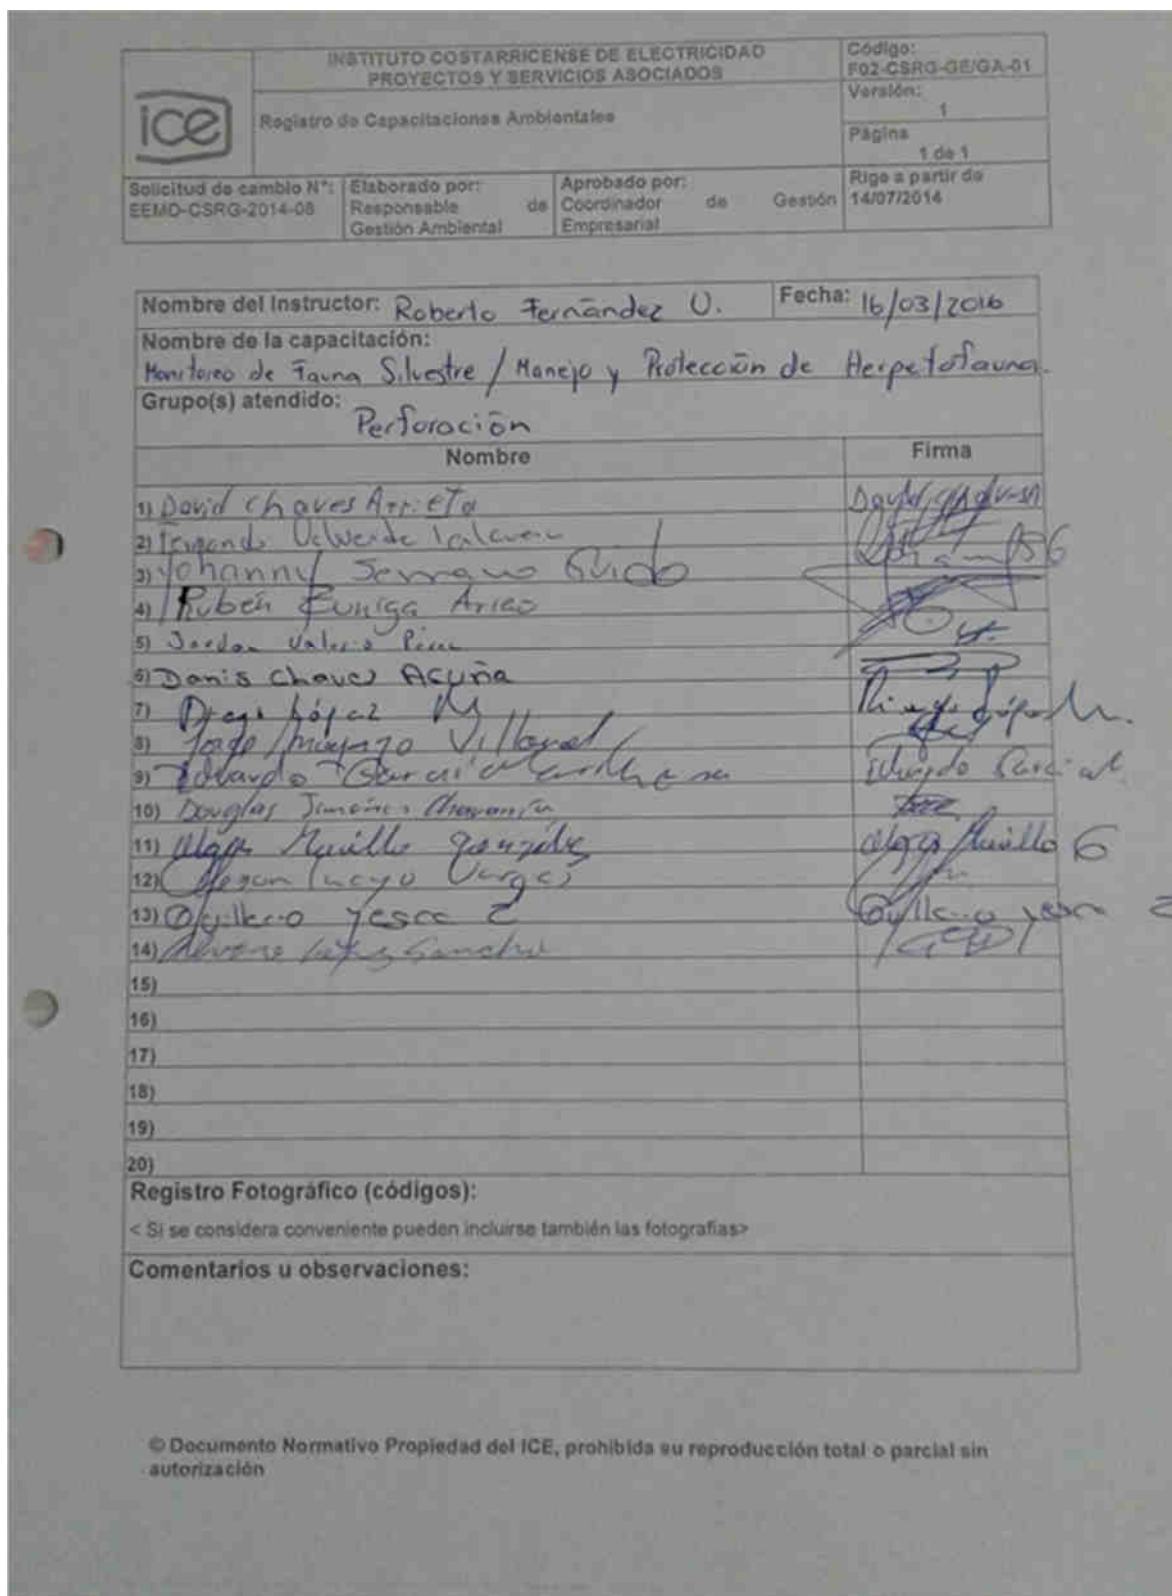 INSTITUTO COSTARRICENSE DE ELECTRICIDAD
PROYECTOS Y SERVICIOS ASOCIADOS
Código:
F02-CSRG-GE/GA-01
ice
Registro de Capacitaciones Ambientales
Versión:
1
Página
1 de 1
Solicitud de cambio N°:
EEMD-CSRG-2014-08
Elaborado por:
Responsable de
Gestión Ambiental
Aprobado por:
Coordinador de Gestión
Empresarial
Rige a partir de
14/07/2014
Nombre del Instructor: Roberto Fernández U.
Fecha: 16/03/2016
Nombre de la capacitación:
Monitoreo de Fauna Silvestre / Manejo y Protección de Herpetofauna.
Grupo(s) atendido:
Perforación
Nombre
Firma
1) David Chaves Arrieta
2) Valverde
3) Yohanny Serrano Guido
4) Rubén
5) Jordan Valerio
6) Danis Chaves Acuña
7) Diego López M
8) Villareal
9) Eduardo García
Eduardo
10) Douglas
11) Murillo González
Murillo G
12) Vargas
13)
14)
15)
16)
17)
18)
19)
20)
Registro Fotográfico (códigos):
< Si se considera conveniente pueden incluirse también las fotografías>
Comentarios u observaciones:
© Documento Normativo Propiedad del ICE, prohibida su reproducción total o parcial sin
autorización